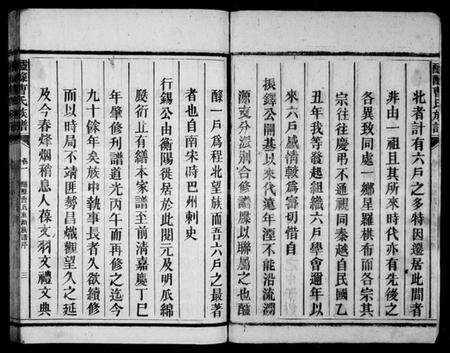 北者計有六戶之多特因遷居此間者
非由一祖且其所來時代亦有先後之
各異致同處一鄉星羅棋布而各宗其
宗往往慶弔不通視同秦越自民國乙
丑年我等發起組織六戶學會邇年以
來六戶感情較為密切惟自
振鐸公開基以來代遠年湮不能沿流溯
源支分派別合修譜牒以聯屬之也醴
醴一戶為程北望族而吾六戶之最著
者也自南宋時巴州刺史
行錫公由衡陽徙居於此閱元及明瓜綿
瓞衍且有續本家譜至前清嘉慶丁巳
年肇修利譜道光丙午而再修之迄今
九十餘年矣族中執事長者久欲續修
而以時局不靖匪勢昌熾觀望久之延
及今春烽烟稍息人葆文羽文禮文典
曹氏族譜
卷一
三
曹氏族譜